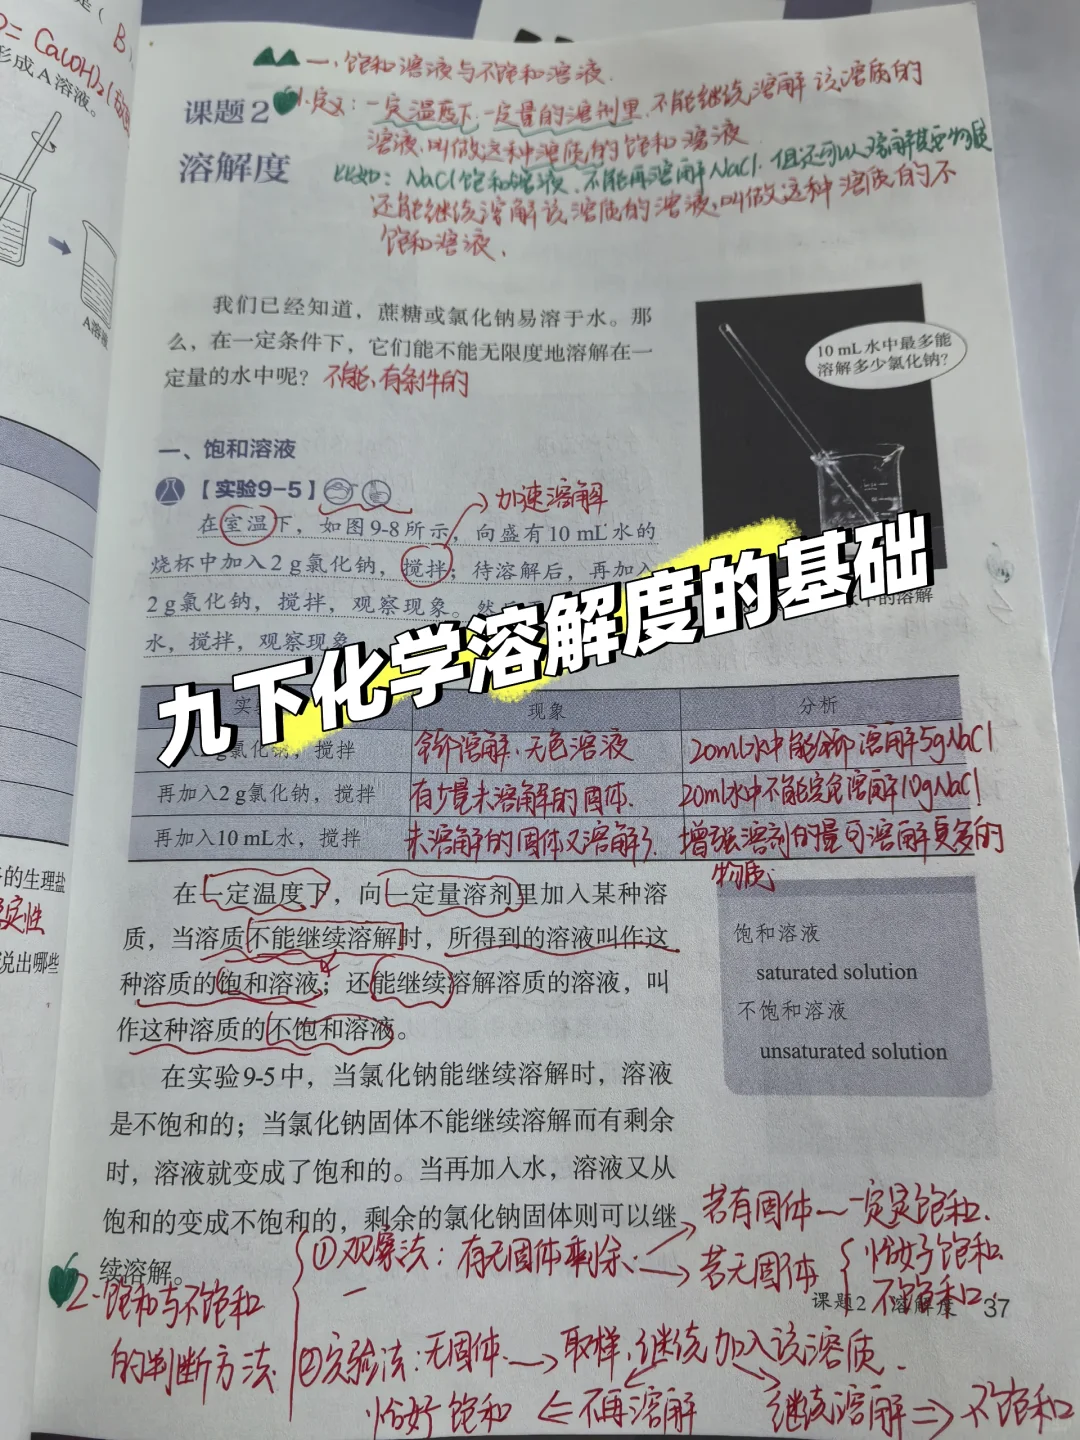 是（ B ）
= Ca(OH)₂(
形成A溶液。
A溶液
一、饱和溶液与不饱和溶液.
课题2
溶解度
1.定义：一定温度下,一定量的溶剂里,不能继续溶解该溶质的
溶液,叫做这种溶质的饱和溶液
比如：NaCl饱和溶液,不能再溶解NaCl,但还可以溶解其它物质
还能继续溶解该溶质的溶液,叫做这种溶质的不
饱和溶液.
我们已经知道，蔗糖或氯化钠易溶于水。那
么，在一定条件下，它们能不能无限度地溶解在一
定量的水中呢？不能,有条件的
10 mL水中最多能
溶解多少氯化钠？
一、饱和溶液
【实验9-5】
加速溶解
在室温下，如图9-8所示，向盛有10 mL水的
烧杯中加入2 g氯化钠，搅拌；待溶解后，再加入
2 g氯化钠，搅拌，观察现象。然后
水，搅拌，观察现象
水中的溶解
九下化学溶解度的基础
实 现象 分析
g氯化钠，搅拌 全部溶解,无色溶液 20ml水中能全部溶解5gNaCl
再加入2 g氯化钠，搅拌 有少量未溶解的固体. 20ml水中不能完全溶解10gNaCl
再加入10 mL水，搅拌 未溶解的固体又溶解了. 增强溶剂的量可溶解更多的
物质.
在一定温度下，向一定量溶剂里加入某种溶
质，当溶质不能继续溶解时，所得到的溶液叫作这
种溶质的饱和溶液；还能继续溶解溶质的溶液，叫
作这种溶质的不饱和溶液。
饱和溶液
saturated solution
不饱和溶液
unsaturated solution
的生理盐
定性
说出哪些
在实验9-5中，当氯化钠能继续溶解时，溶液
是不饱和的；当氯化钠固体不能继续溶解而有剩余
时，溶液就变成了饱和的。当再加入水，溶液又从
饱和的变成不饱和的，剩余的氯化钠固体则可以继
续溶解。
2.饱和与不饱和
的判断方法
①观察法：有无固体剩余.
若有固体一一定是饱和.
若无固体 恰好饱和
不饱和.
课题2 溶解度 37
②实验法：无固体.→取样,继续加入该溶质.
恰好饱和⇐不再溶解 继续溶解⇒不饱和